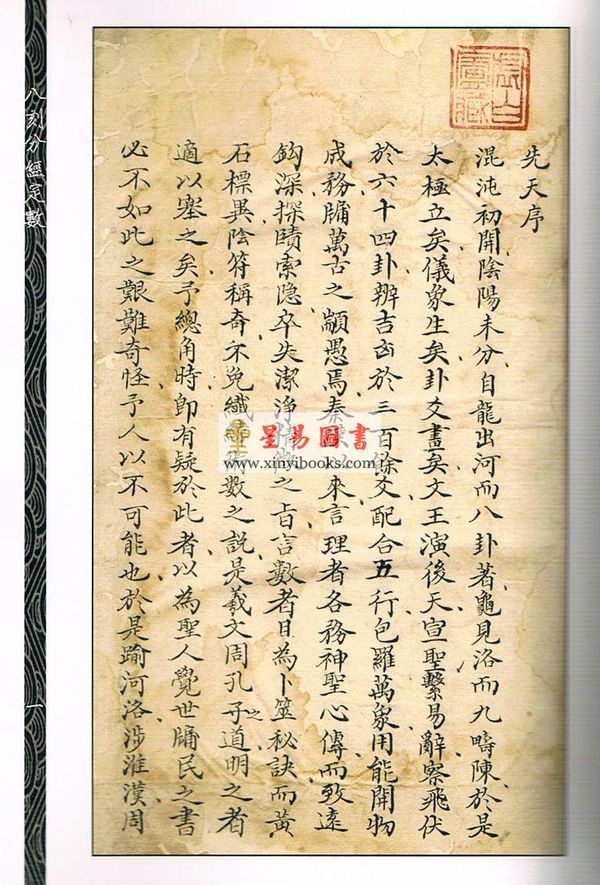 先天序
混沌初開陰陽未分自龍出河而八卦著龜見洛而九疇陳於是
太極立矣儀象生矣卦爻畫矣文王演後天宣聖繫易辭察飛伏
於六十四卦辨吉凶於三百餘爻配合五行包羅萬象用能開物
成務牖萬古之顓愚焉秦以來言理者各務神聖心傳而致遠
鈎深探賾索隐卒失潔淨之旨言數者目為卜筮秘訣而黃
石標異陰符稱奇不免纖數之說是羲文周孔子道明之者
之
適以塞之矣予總角時即有疑於此者以為聖人覺世牖民之書
必不如此之艱難奇怪予人以不可能也於是踰河洛涉淮漢周
八刻分經定數
一
星易圖書
www.xinyibooks.com